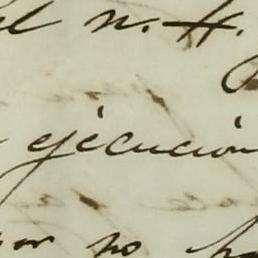 el n. H.
ejecucion
por no